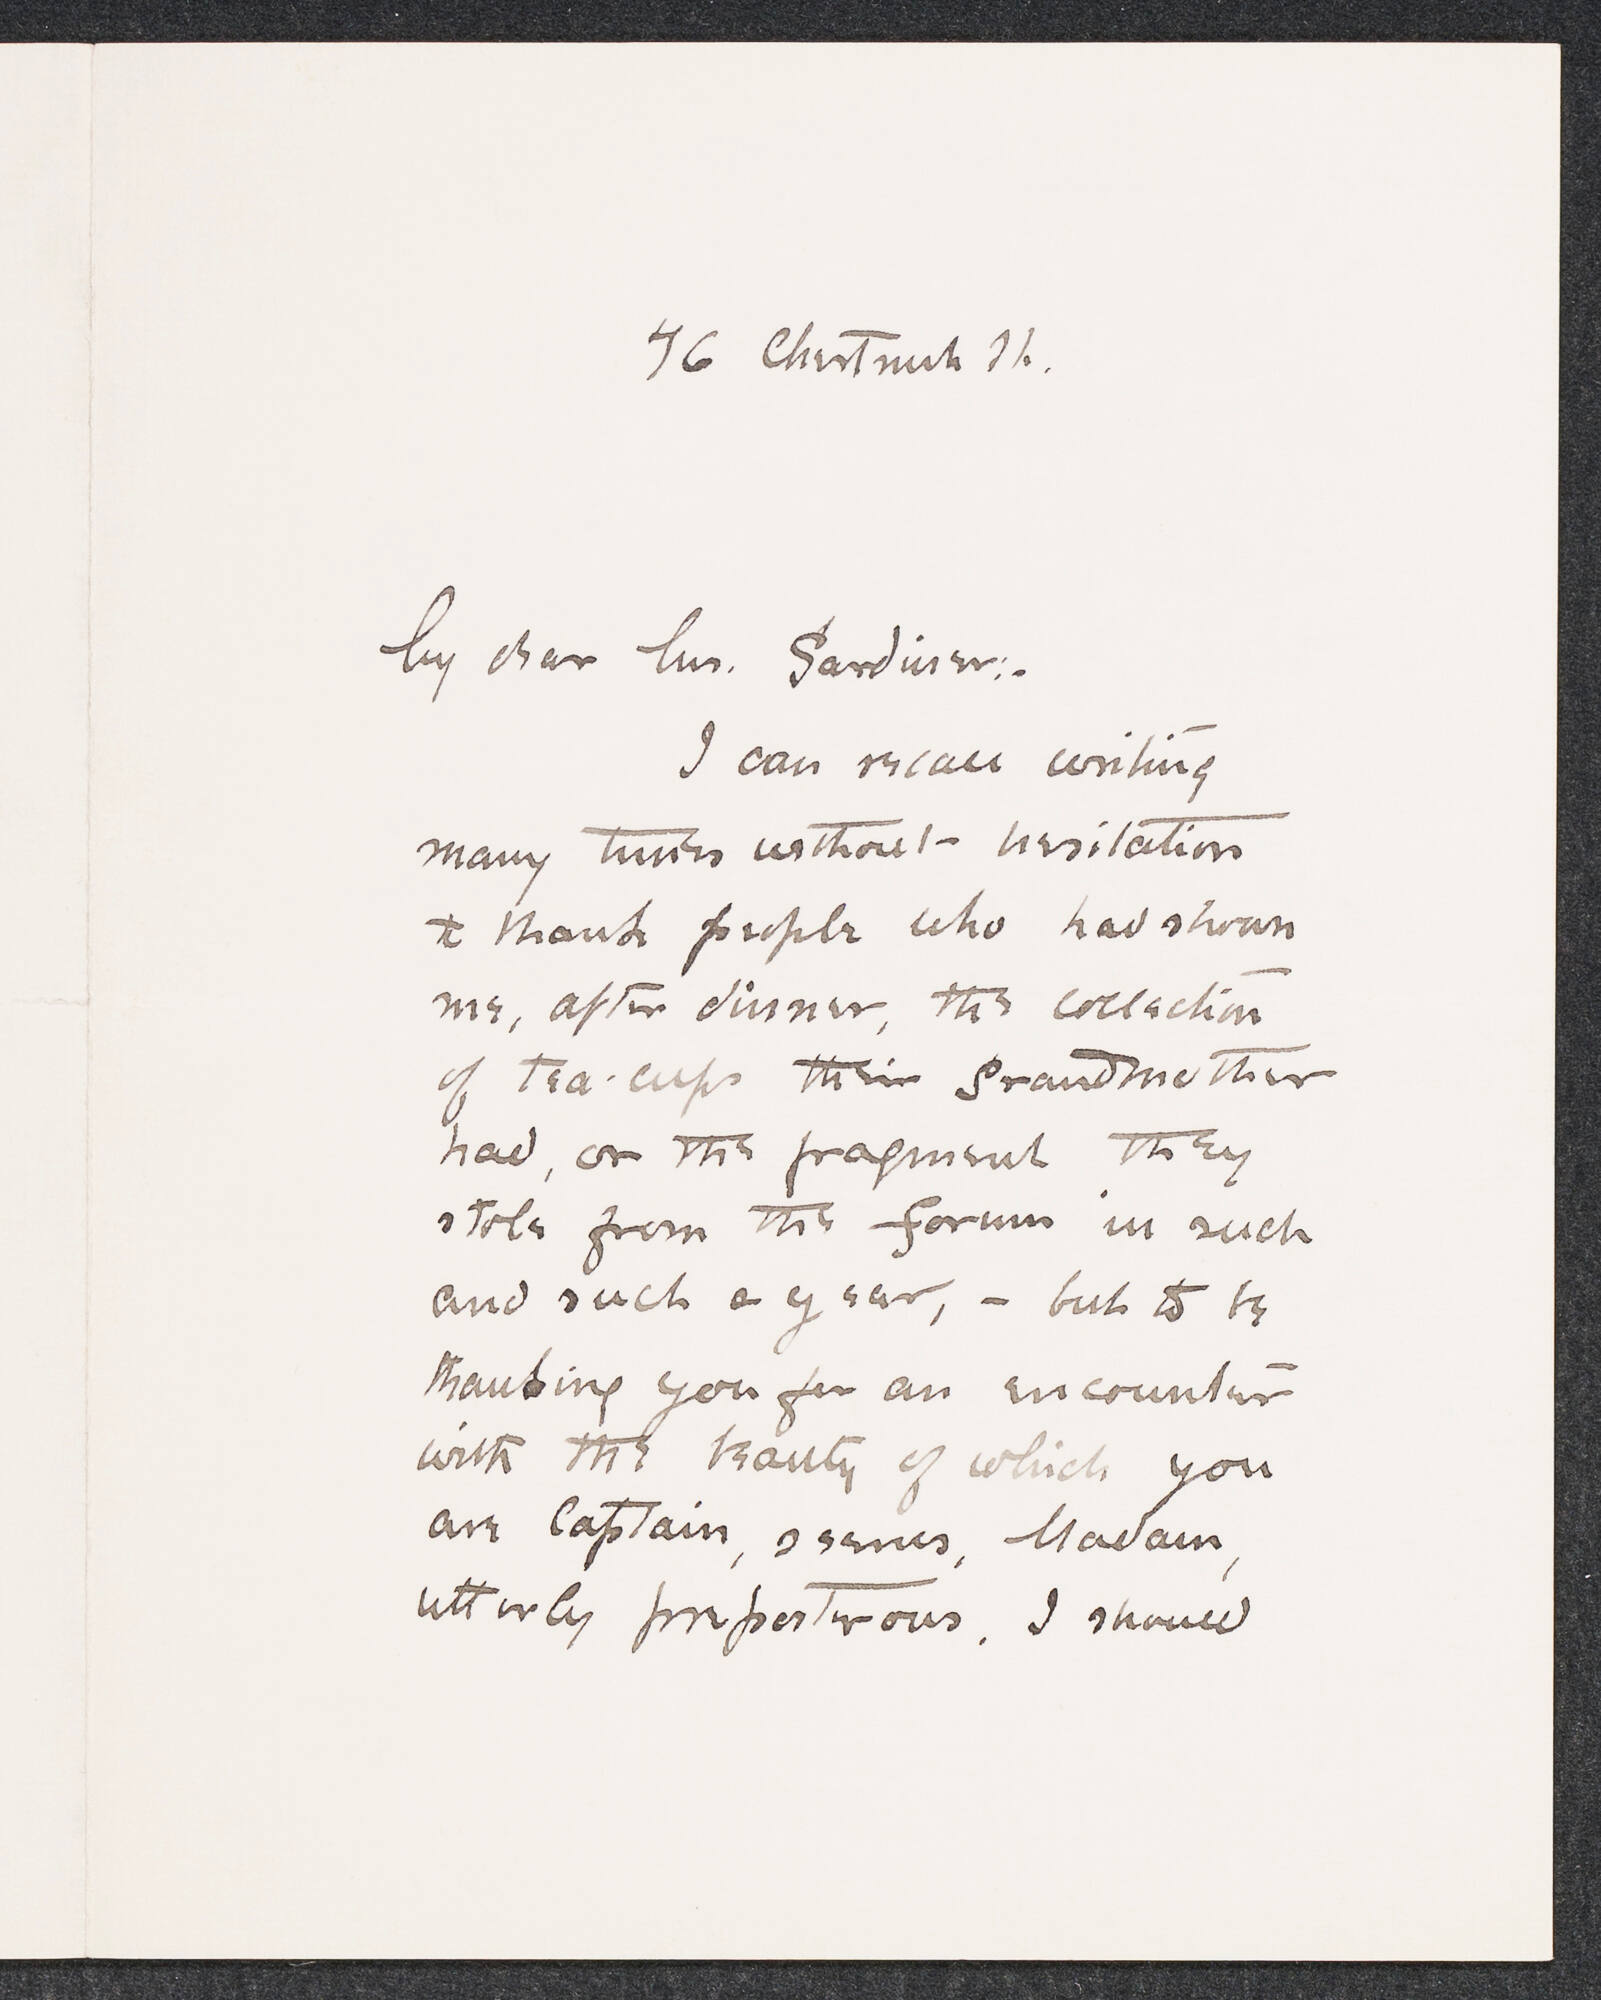 76 Chestnut St.
My dear Mrs. Gardiner:-
I can recall writing
many times without hesitation
to thank people who had shown
me, after dinner, the collection
of tea-cups their Grandmother
had, or the fragment they
stole from the Forum in such
and such a year, - but to be
thanking you for an encounter
with the beauty of which you
are Captain, seems, Madam,
utterly preposterous. I should